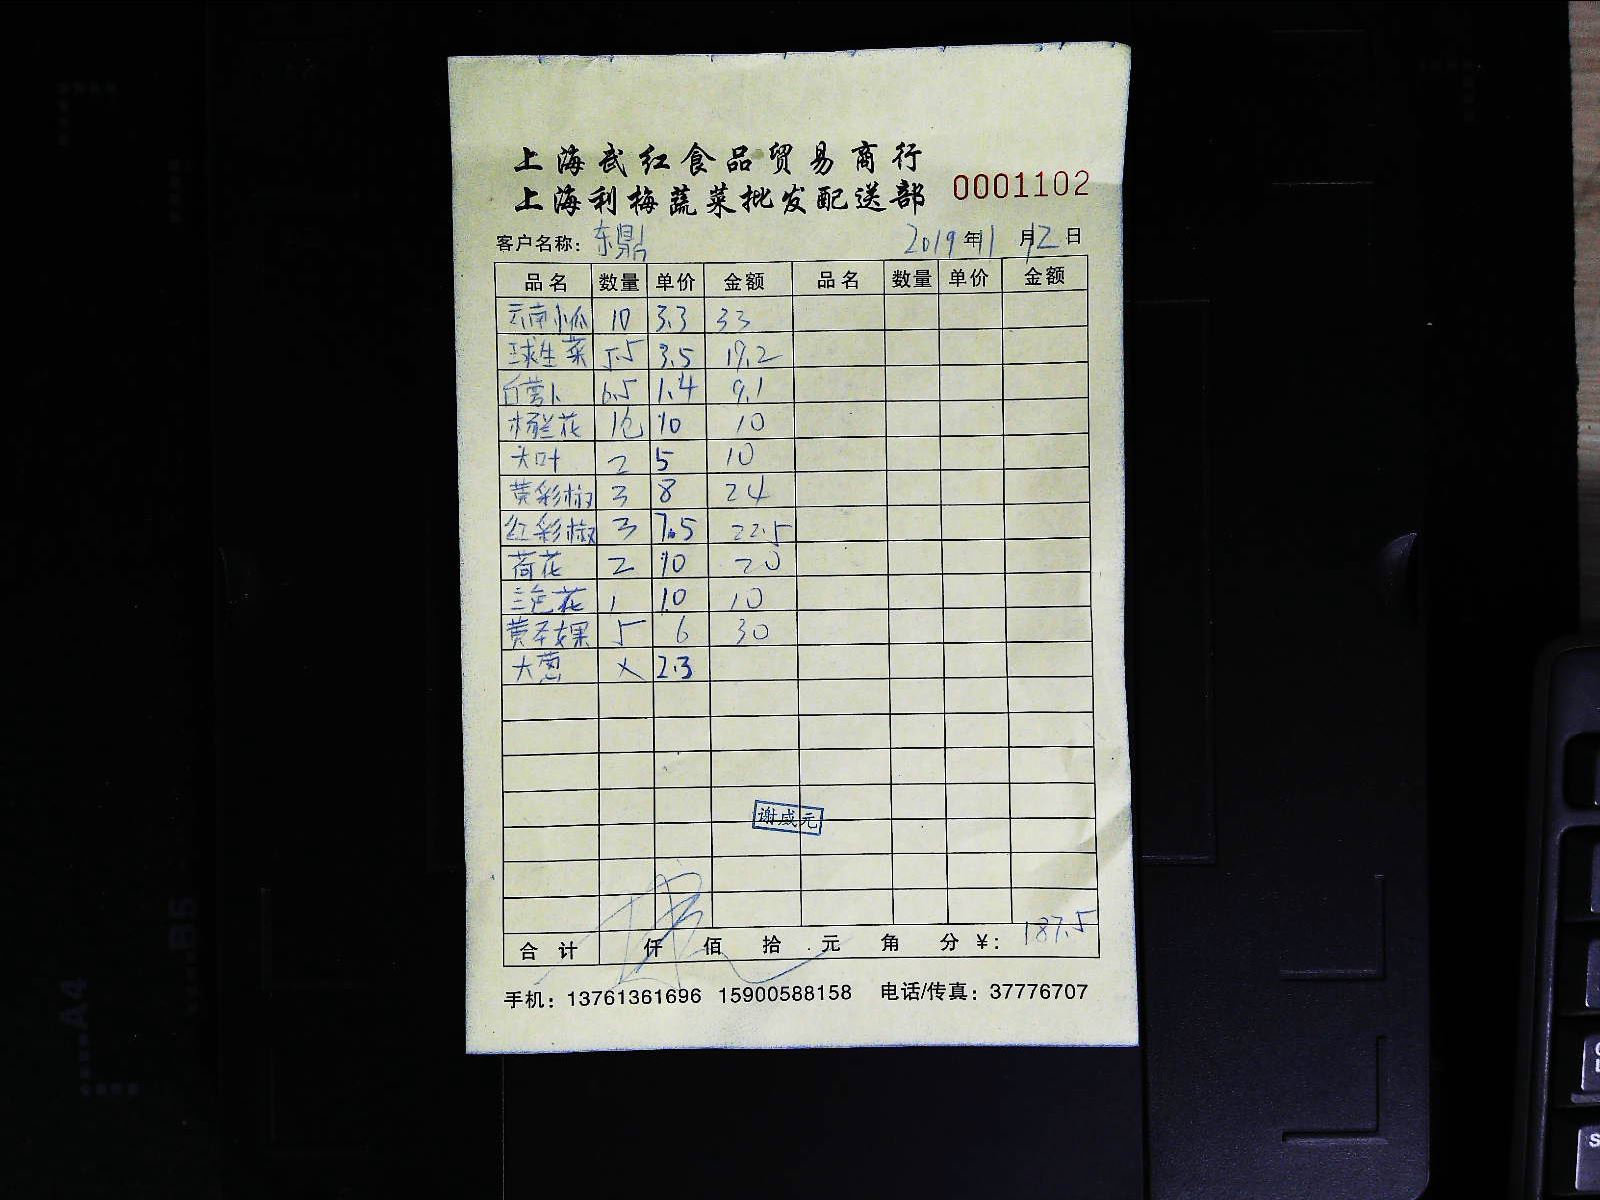 上海武红食品贸易商行
上海利梅蔬菜批发配送部 0001102
客户名称：东鼎 2019年11月12日
品名 数量 单价 金额 品名 数量 单价 金额
云南小瓜 10 3.3 33
球生菜 5.5 3.5 19.2
白萝卜 6.5 1.4 9.1
杨兰花 1包 10 10
大叶 2 5 10
黄彩椒 3 8 24
红彩椒 3 7.5 22.5
荷花 2 10 20
三色花 1 10 10
黄圣女果 5 6 30
大葱 x 2.3
谢威元
合计 仟 佰 拾 元 角 分 ¥: 187.5
手机：13761361696 15900588158 电话/传真：37776707